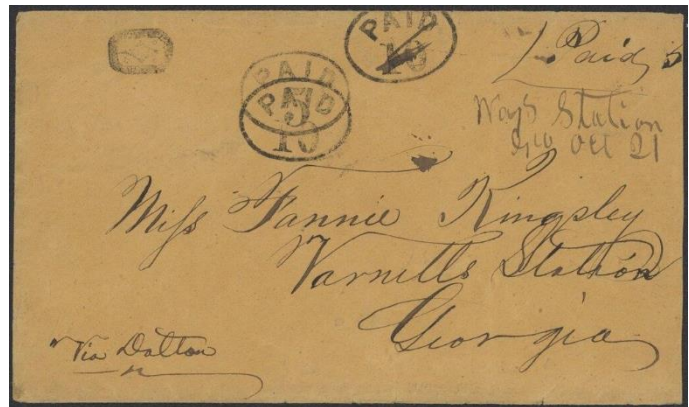 PAID
10
PAID
5
PAID
10
Paid 5
Ways Station
Geo Oct 21
Miss Fannie Kingsley
Varnells Station
Georgia
Via Dalton